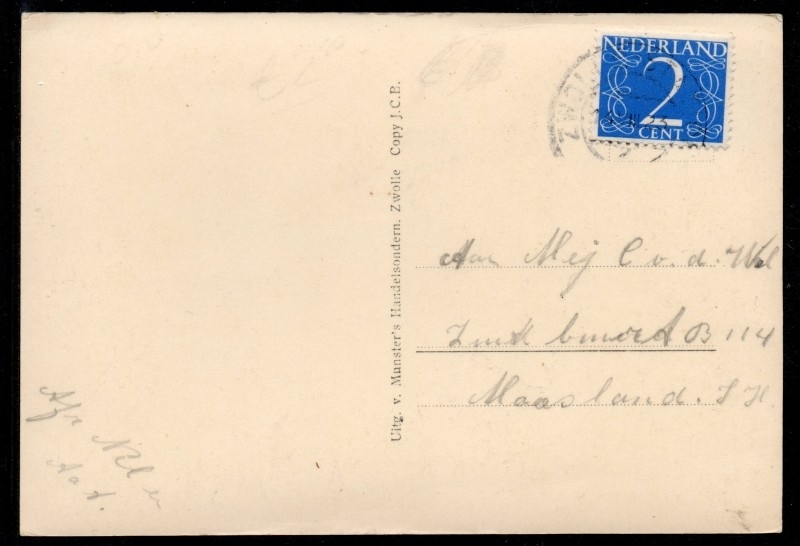 NEDERLAND
2
CENT
ZWOLLE
Uitg. v. Munster's Handelsondern. Zwolle Copy J.C.B.
Aan Mej C v. d. Wel
B 114
Maasland. Z H.
Afz